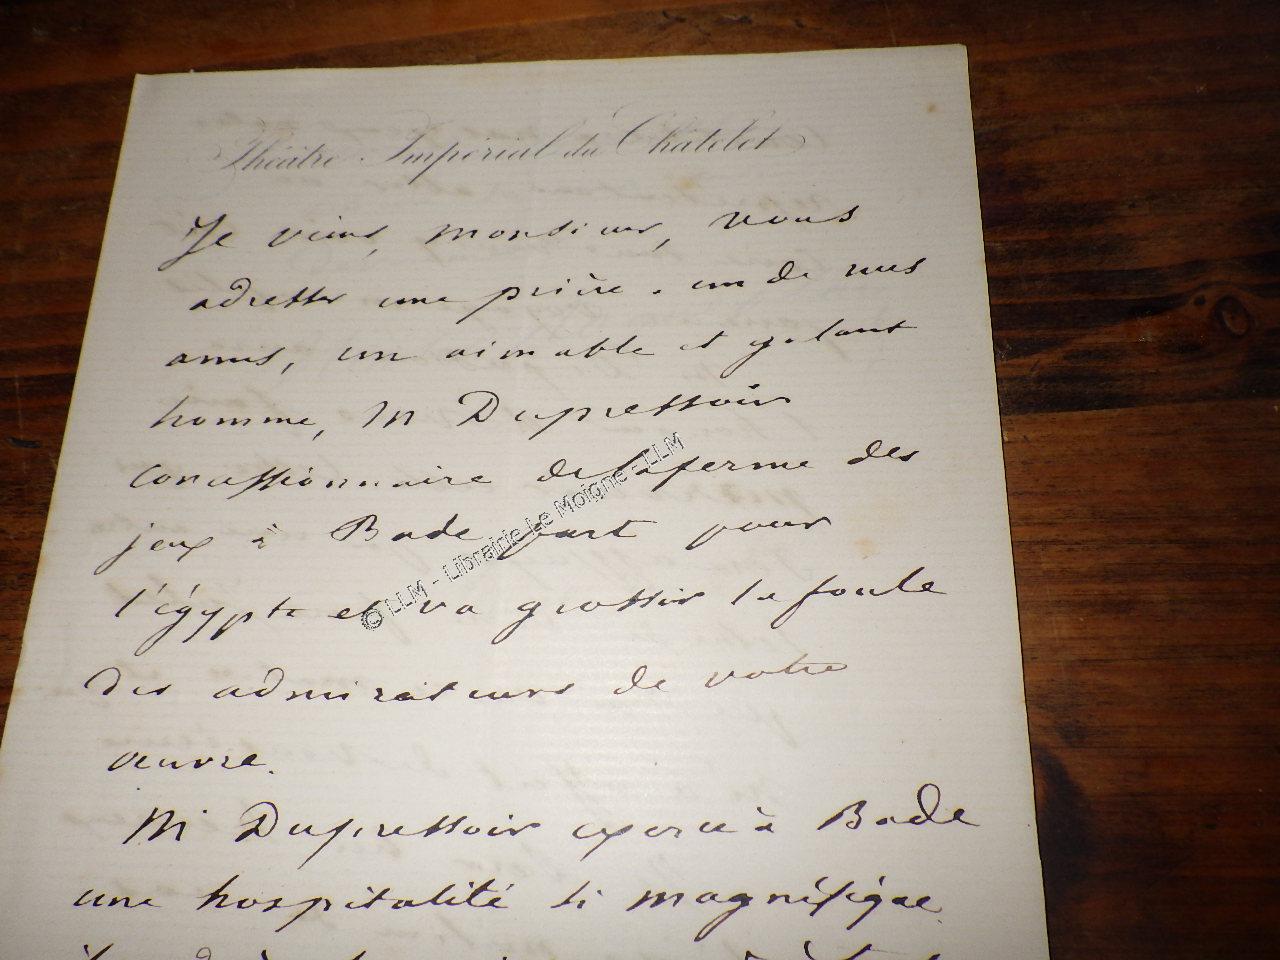 Théâtre Impérial du Châtelet
Je viens, monsieur, vous
adresser une prière. un de mes
amis, un aimable et galant
homme, M Dupressoir
concessionnaire de la ferme des
jeux à Bade part pour
l'égypte et va grossir la foule
des admirateurs de votre
œuvre.
M Dupressoir exerce à Bade
une hospitalité si magnifique
© LLM - Librairie Le Moigne - LLM